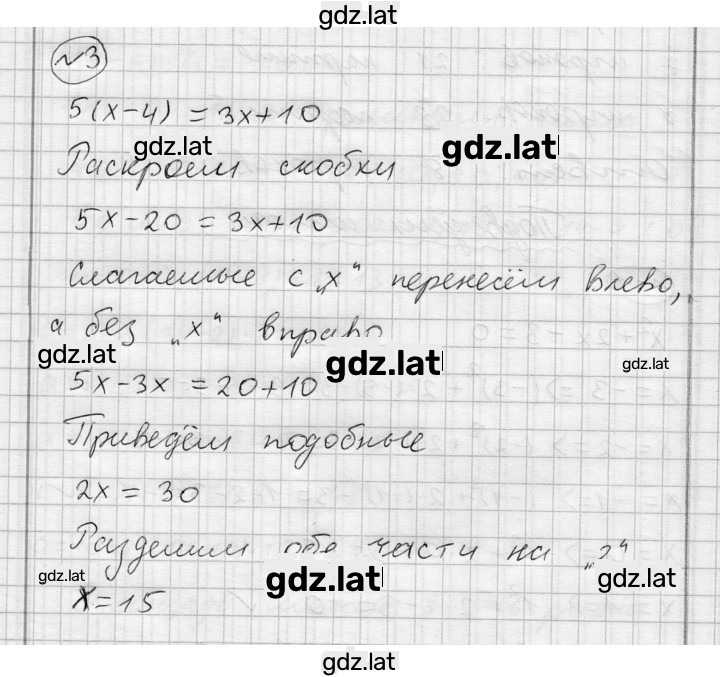 gdz.lat
№3
5(x-4) = 3x+10
gdz.lat
gdz.lat
Раскроем скобки
5x-20 = 3x+10
Слагаемые с „x“ перенесём влево,
а без „x“ вправо
gdz.lat
gdz.lat
gdz.lat
5x-3x = 20+10
Приведём подобные
2x = 30
Разделим обе части на „2“
gdz.lat
gdz.lat
gdz.lat
x=15
gdz.lat